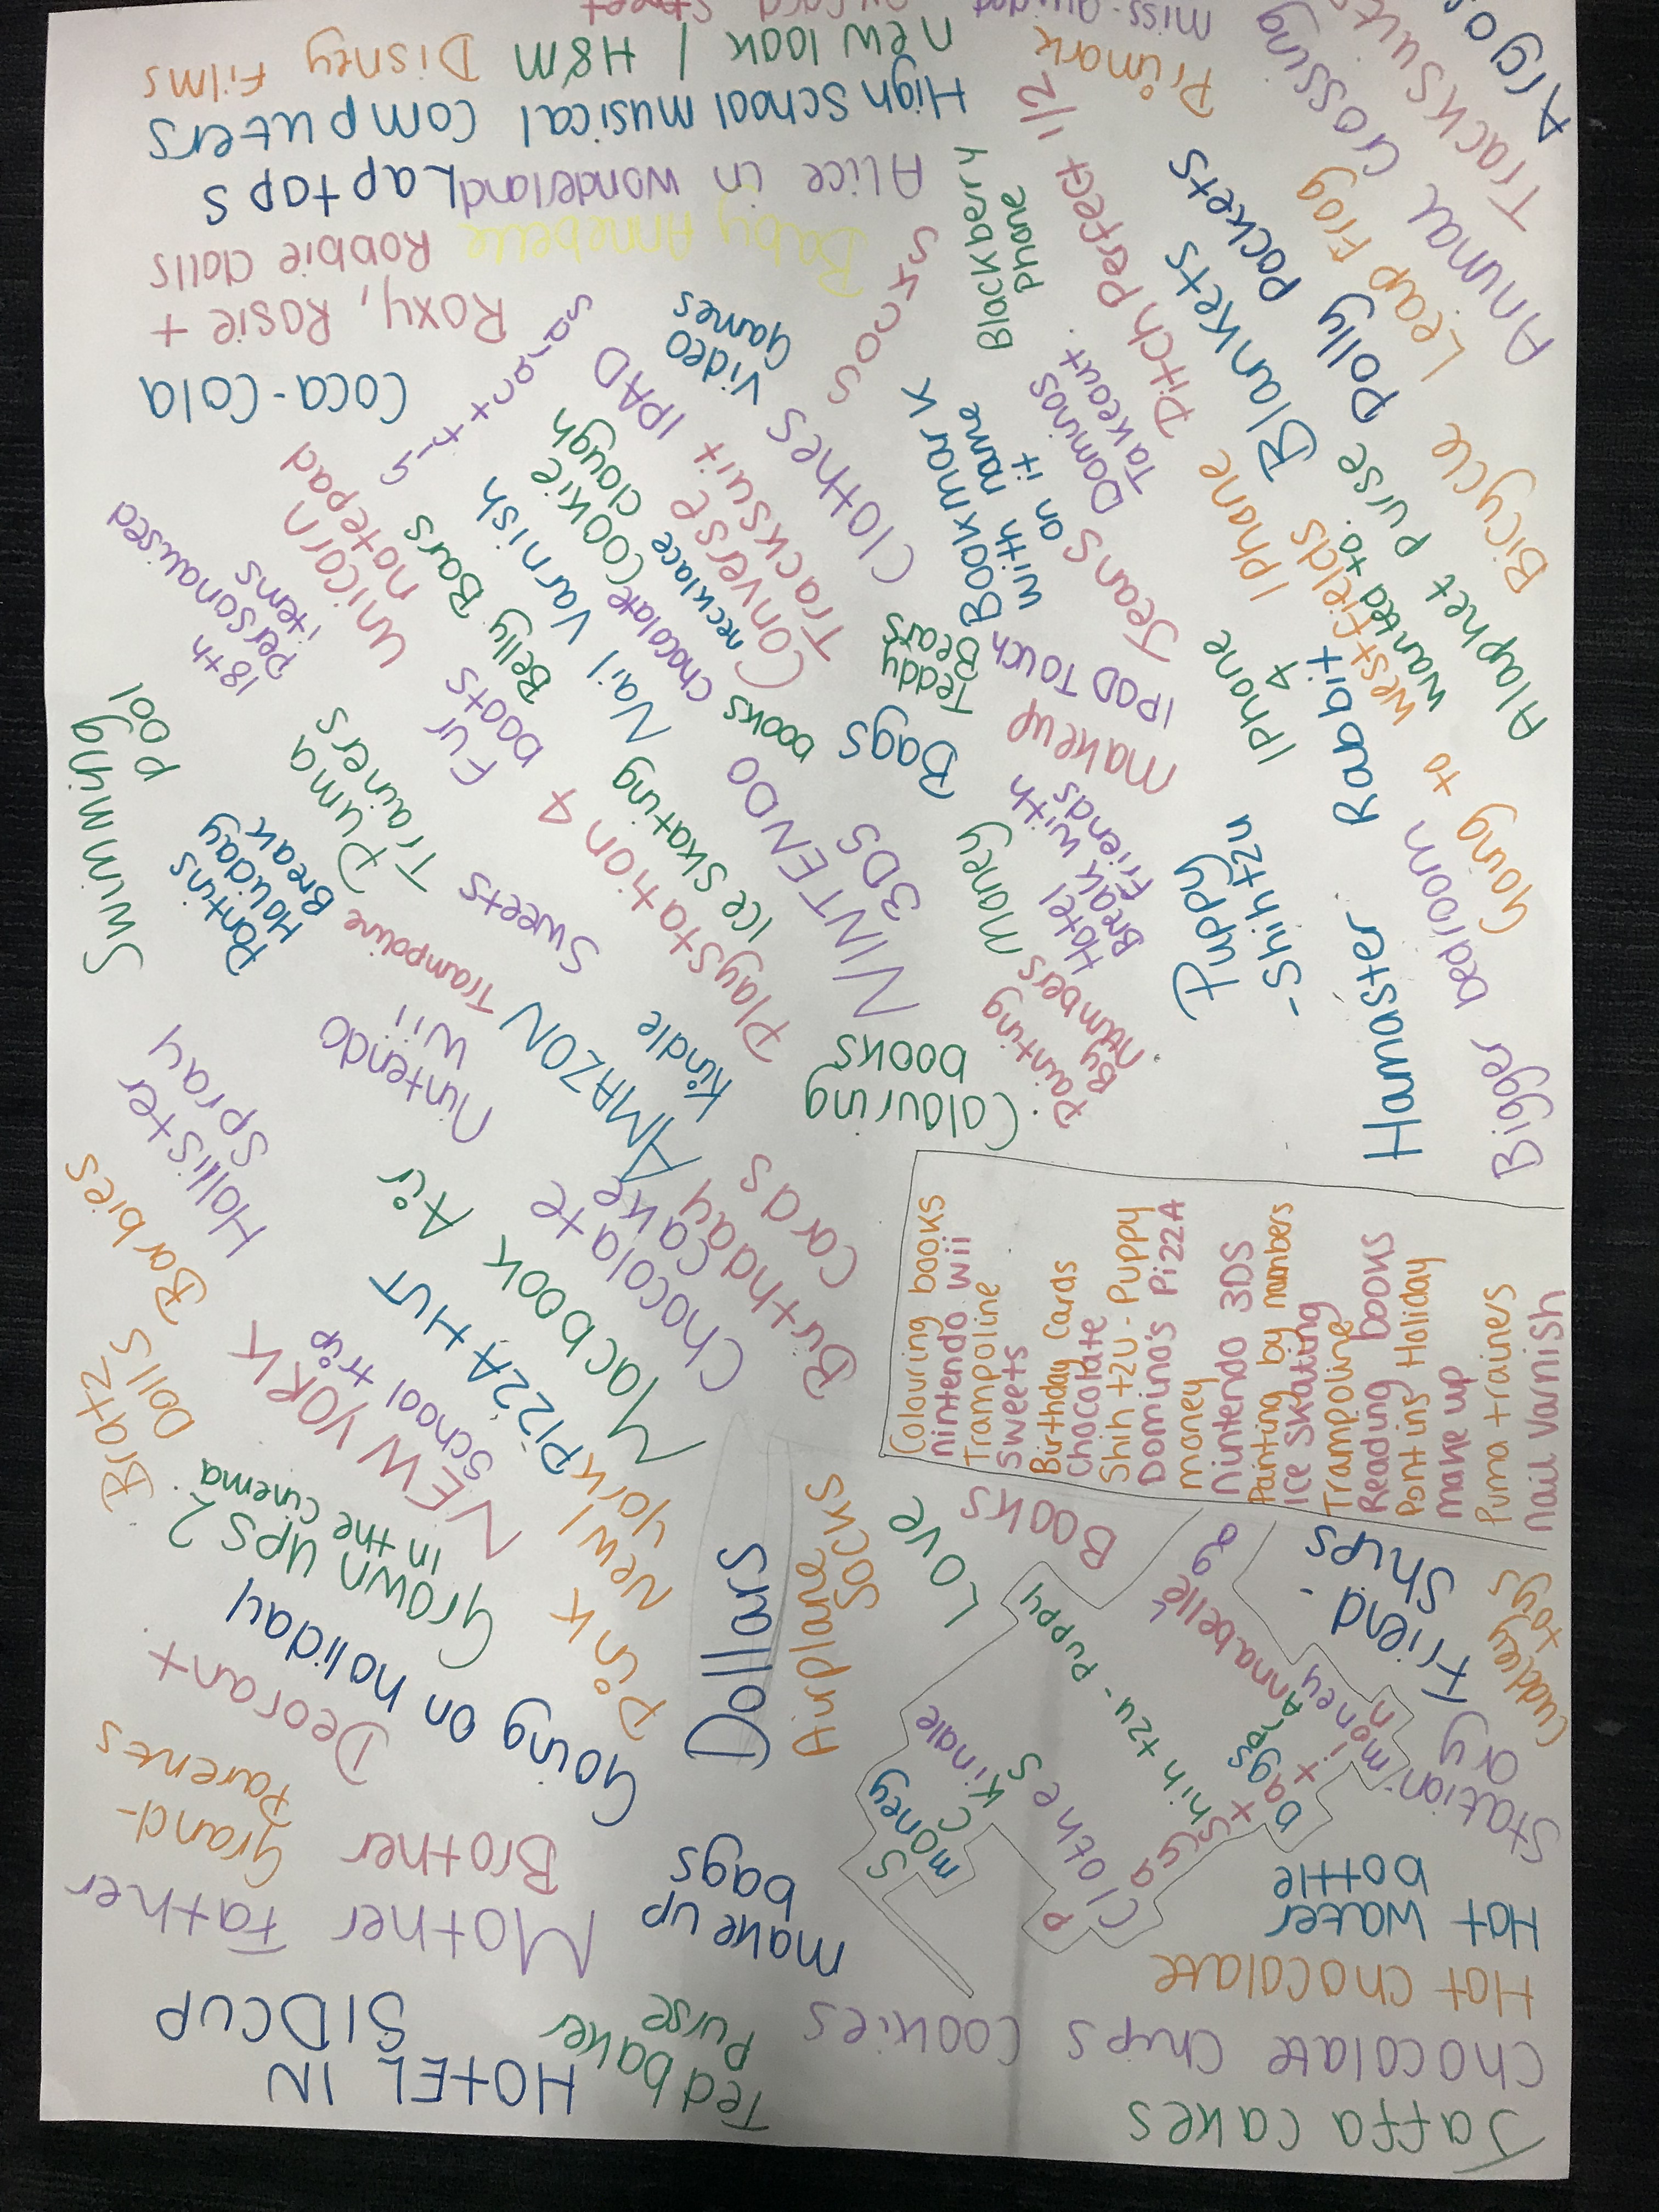 Jaffa cakes
Chocolate Chips Cookies
Ted baker
Purse
HOTEL IN
SIDCUP
Hot chocolate
Hot water
bottle
make up
bags
Mother
Father
Brother
Grand-
Parents
Station-
ary
Cuddley
toys
Friend-
Ships
S
money
Kindle
Clothes
Shih tzu - Puppy
bags
money
Annabelle
Dollars
Airplane
Socks
Love
Books
Going on holiday
Deorant
Pink
New
York
Grown ups 2
in the cinema
NEW YORK
School trip
PIZZA HUT
Bratz
Dolls
Barbies
Macbook Air
Chocolate
Cake
Birthday
Cards
Colouring books
nintendo wii
Trampoline
Sweets
Birthday Cards
Chocolate
Shih tzu - Puppy
Domino's PizzA
money
Nintendo 3DS
Painting by numbers
Ice Skating
Trampoline
Reading books
Pontins Holiday
make up
Puma trainers
nail varnish
Hollister
Spray
Nintendo
Wii
AMAZON
Kindle
Trampoline
Colouring
books
Painting
By
Numbers
Bigger bedroom
Hamaster
Rabbit
Puppy
-Shihtzu
Hotel
Break with
Friends
money
NINTENDO
3DS
Playstation 4
Ice Skating
Sweets
Pontins
Holiday
Break
Swimming
pool
Puma
Trainers
Fur
boots
books
Bags
makeup
Teddy
Bears
IPOD TOUCH
IPhone
4
Going to
westfields
Alaphet Purse
wanted to.
Bicycle
IPhone
Jeans
Bookmark
with name
on it
Dominos
Takeout.
Clothes
Converse
Tracksuit
IPAD
necklace
chocolate
Cookie
dough
Nail Varnish
Belly Bars
18th
personalised
items
Unicorn
notepad
Coca-Cola
Video
Games
Blankets
Polly Pockets
Pitch Perfect 1/2
Blackberry
Phone
Leap Frog
Animal Crossing
Tracksuit
Argos
Primark
Roxy, Rosie +
Robbie dolls
Baby Annebelle
Alice in wonderland
Laptops
High school musical
Computers
New look / H&M
Disney films